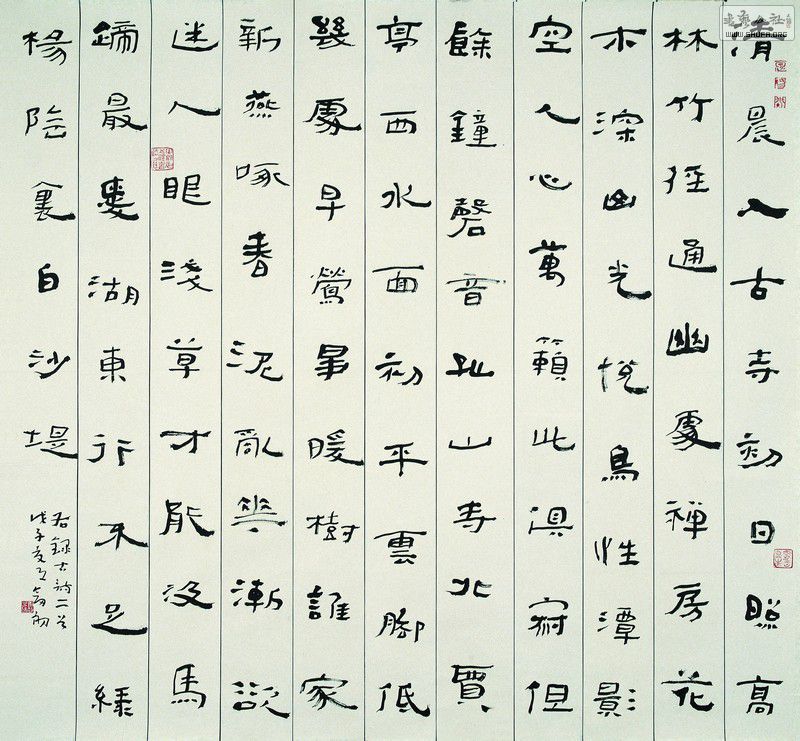 清晨入古寺初日照高
林竹徑通幽處禪房花
木深山光悅鳥性潭影
空人心萬籟此俱寂但
餘鐘磬音孤山寺北賈
亭西水面初平雲腳低
幾處早鶯爭暖樹誰家
新燕啄春泥亂花漸欲
迷人眼淺草才能没馬
蹄最愛湖東行不足綠
楊陰裏白沙堤
右録古詩二首
戊子夏月
WWW.SHUFA.ORG